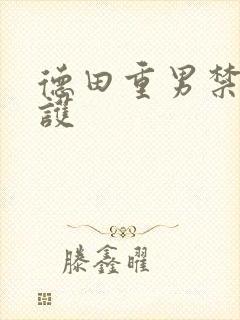 德田重男禁
護
滕鑫曜